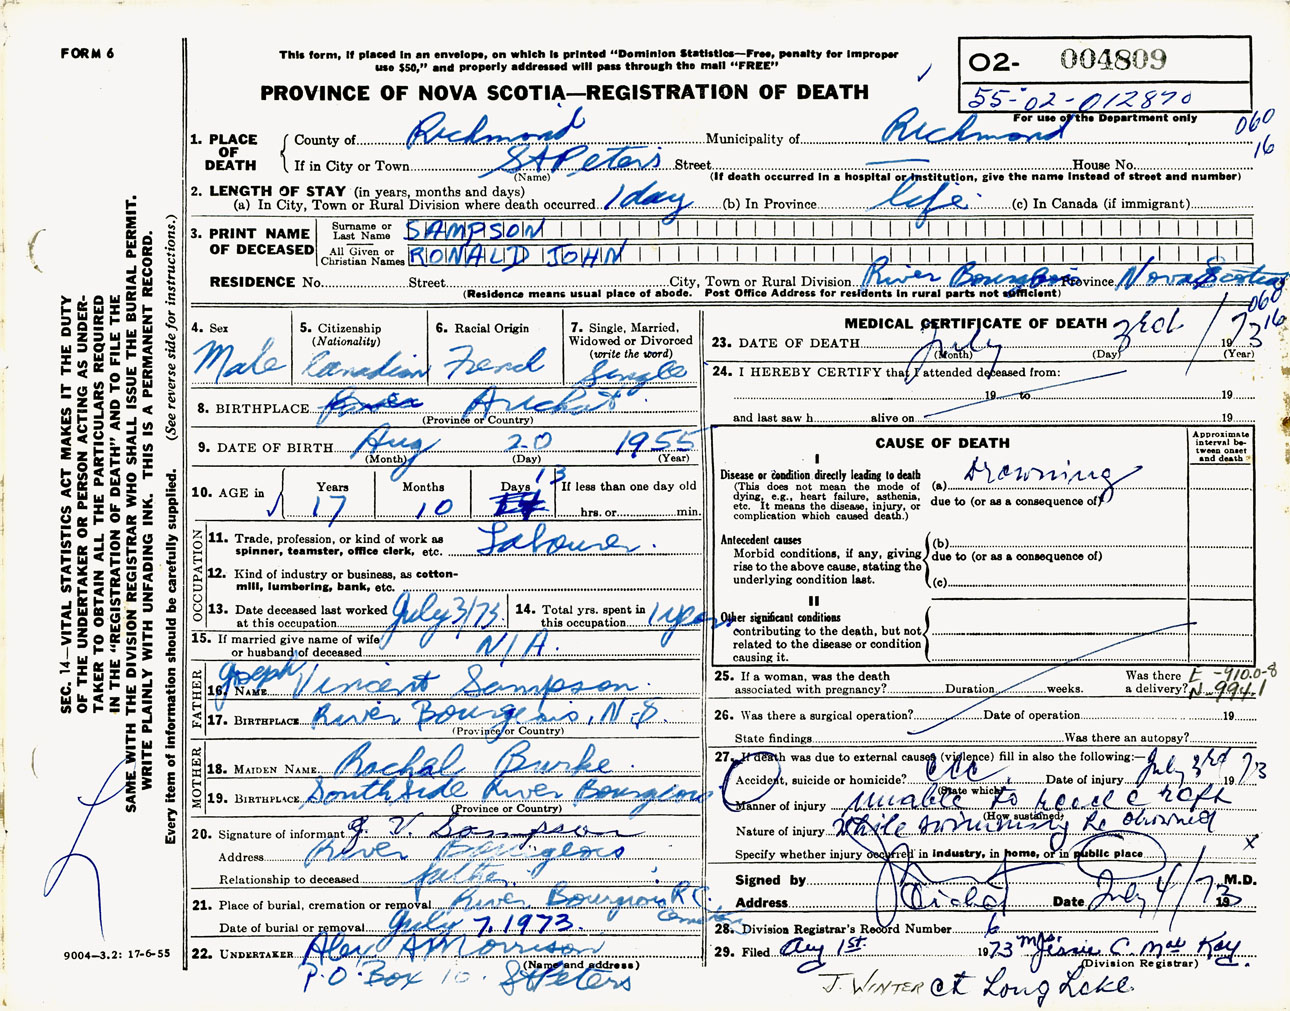 FORM 6
This form, if placed in an envelope, on which is printed "Dominion Statistics—Free, penalty for improper
use $50," and properly addressed will pass through the mail "FREE"
PROVINCE OF NOVA SCOTIA—REGISTRATION OF DEATH
02- 004809
55-02-012870
For use of the Department only
060
16
1. PLACE OF DEATH
County of Richmond Municipality of Richmond
If in City or Town St Peters Street — House No.
(Name) (If death occurred in a hospital or institution, give the name instead of street and number)
2. LENGTH OF STAY (in years, months and days)
(a) In City, Town or Rural Division where death occurred 1 day (b) In Province life (c) In Canada (if immigrant)
3. PRINT NAME OF DECEASED
Surname or Last Name SAMPSON
All Given or Christian Names RONALD JOHN
RESIDENCE No. Street City, Town or Rural Division River Bourgeois Province Nova Scotia
(Residence means usual place of abode. Post Office Address for residents in rural parts not sufficient)
060
16
4. Sex Male
5. Citizenship (Nationality) Canadian
6. Racial Origin French
7. Single, Married, Widowed or Divorced (write the word) Single
8. BIRTHPLACE Arichat
(Province or Country)
9. DATE OF BIRTH Aug 20 1955
(Month) (Day) (Year)
10. AGE in Years 17 Months 10 Days 13 If less than one day old
hrs. or min.
OCCUPATION
11. Trade, profession, or kind of work as
spinner, teamster, office clerk, etc. Labourer.
12. Kind of industry or business, as cotton-
mill, lumbering, bank, etc.
13. Date deceased last worked
at this occupation July 3/73
14. Total yrs. spent in
this occupation 1 years
15. If married give name of wife
or husband of deceased N/A.
FATHER
16. NAME Joseph Vincent Sampson.
17. BIRTHPLACE River Bourgeois, N.S.
(Province or Country)
MOTHER
18. MAIDEN NAME Rachal Burke.
19. BIRTHPLACE South Side River Bourgeois
(Province or Country)
20. Signature of informant J. V. Sampson
Address River Bourgeois
Relationship to deceased father.
21. Place of burial, cremation or removal River Bourgeois R.C. Cemetery
Date of burial or removal July 7, 1973.
22. UNDERTAKER Alex A Morrison
(Name and address)
P.O. Box 10. St Peters
MEDICAL CERTIFICATE OF DEATH
23. DATE OF DEATH July 3rd 1973
(Month) (Day) (Year)
24. I HEREBY CERTIFY that I attended deceased from:
19 to 19
and last saw h alive on 19
CAUSE OF DEATH
Approximate interval between onset and death
I
Disease or condition directly leading to death
(This does not mean the mode of
dying, e.g., heart failure, asthenia,
etc. It means the disease, injury, or
complication which caused death.)
(a) Drowning
due to (or as a consequence of)
Antecedent causes
Morbid conditions, if any, giving
rise to the above cause, stating the
underlying condition last.
(b)
due to (or as a consequence of)
(c)
II
Other significant conditions
contributing to the death, but not
related to the disease or condition
causing it.
25. If a woman, was the death
associated with pregnancy? Duration weeks.
Was there
a delivery?
E-910.0-8
N-994.1
26. Was there a surgical operation? Date of operation 19
State findings Was there an autopsy?
27. If death was due to external causes (violence) fill in also the following:—
Accident, suicide or homicide? acc. Date of injury July 3rd 1973
(State which)
Manner of injury unable to reach a raft
(How sustained)
Nature of injury while swimming he drowned
Specify whether injury occurred in industry, in home, or in public place x
Signed by M.D.
Address Arichat Date July 4/73 19
28. Division Registrar's Record Number 6
29. Filed Aug 1st. 1973 Mrs. Jessie C. MacKay.
(Division Registrar)
J. WINTER ct Long Lake
SEC. 14—VITAL STATISTICS ACT MAKES IT THE DUTY
OF THE UNDERTAKER OR PERSON ACTING AS UNDER-
TAKER TO OBTAIN ALL THE PARTICULARS REQUIRED
IN THE "REGISTRATION OF DEATH" AND TO FILE THE
SAME WITH THE DIVISION REGISTRAR WHO SHALL ISSUE THE BURIAL PERMIT.
WRITE PLAINLY WITH UNFADING INK. THIS IS A PERMANENT RECORD.
Every item of information should be carefully supplied. (See reverse side for instructions.)
9004-3.2: 17-6-55